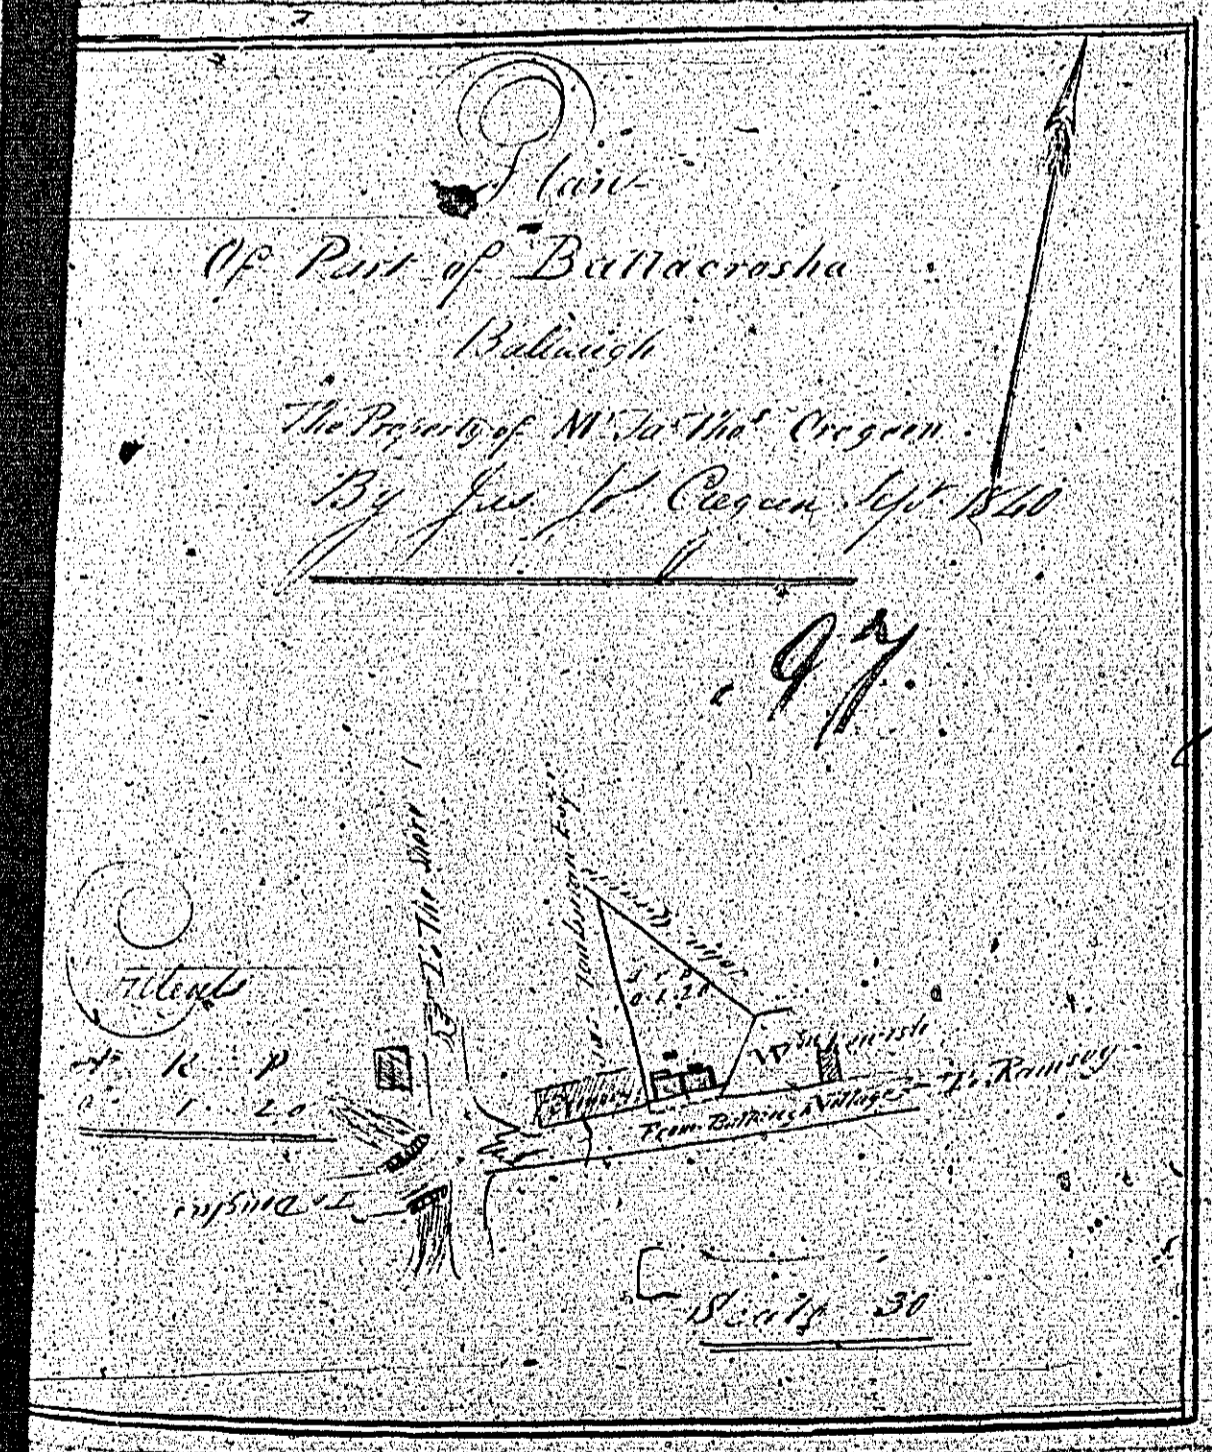 Plan
Of Part of Ballacrosha
Ballaugh
The Property of Mr Jas Thos Cregeen
By Jas Jos Cregeen Sept 1840
97.
To The Shore
John
A R P
0.1.20
Contents
A R P
0 1 20
Wm
To Ramsey
From Ballaugh Village
To Douglas
Scale 30